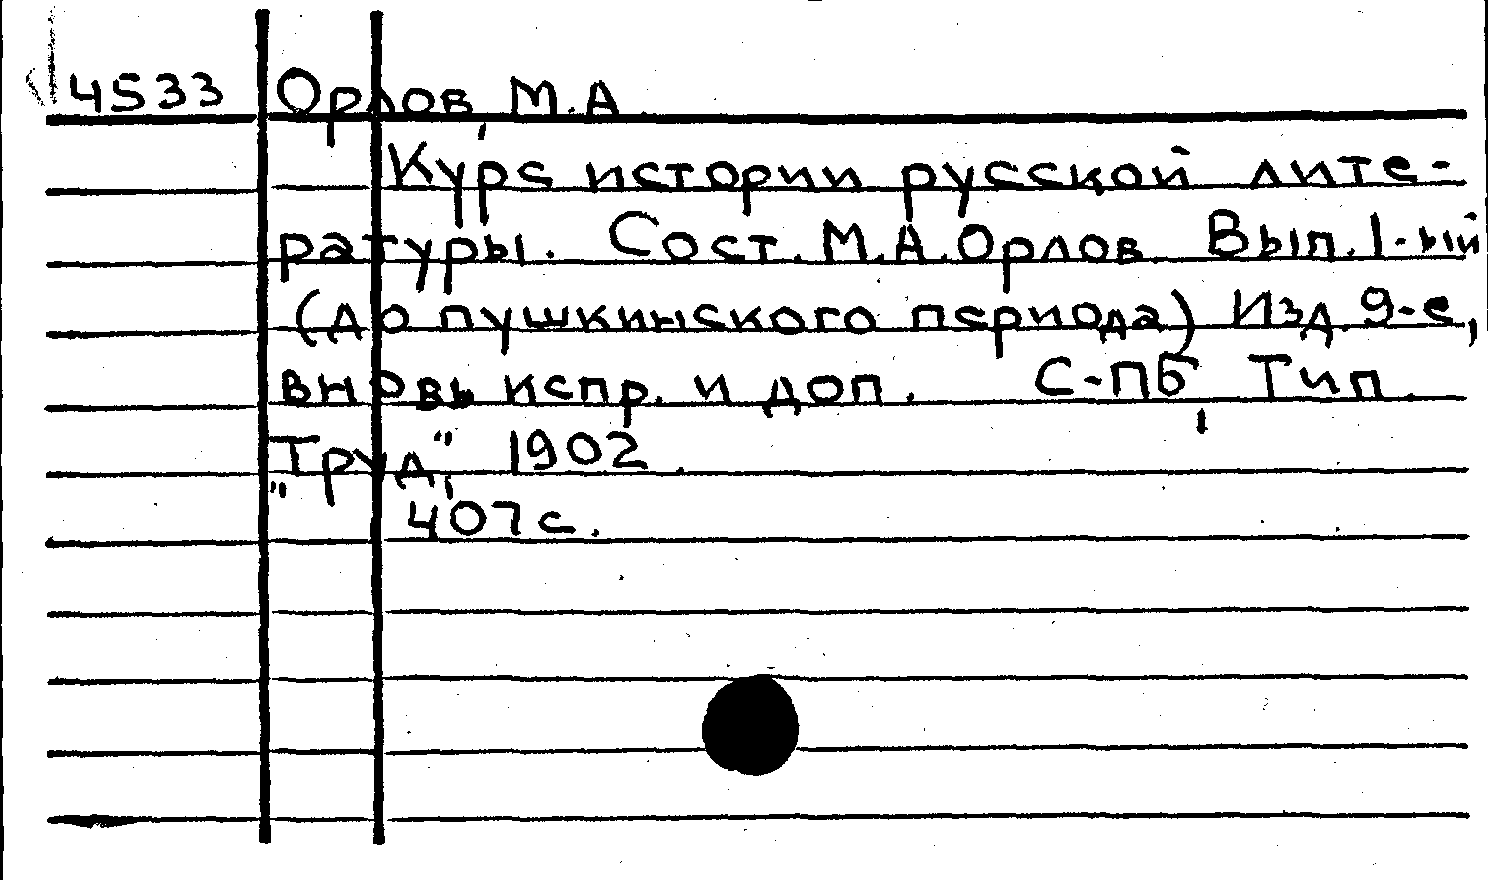 4533 Орлов, М.А.
Курс истории русской лите-
ратуры. Сост. М.А.Орлов. Вып. I-ый
(до пушкинского периода) Изд. 9-е,
вновь испр. и доп. С-ПБ, Тип.
„Труд“, 1902.
407 с.